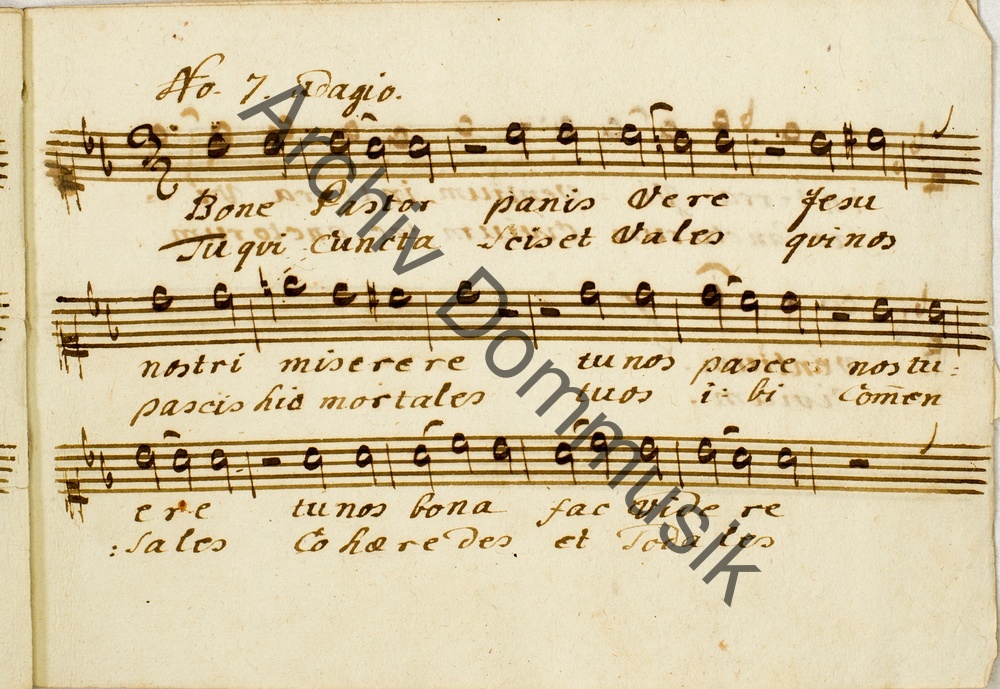 No. 7. adagio.
Bone Pastor panis Vere Jesu
Tu qui Cuncta Scis et Vales qvi nos
nostri miserere tu nos pasce nos tu:
pascis hic mortales tuos i: bi Com̄en
ere tu nos bona fac vide re
:Sales Co hære des et Soda les
Archiv Dommusik